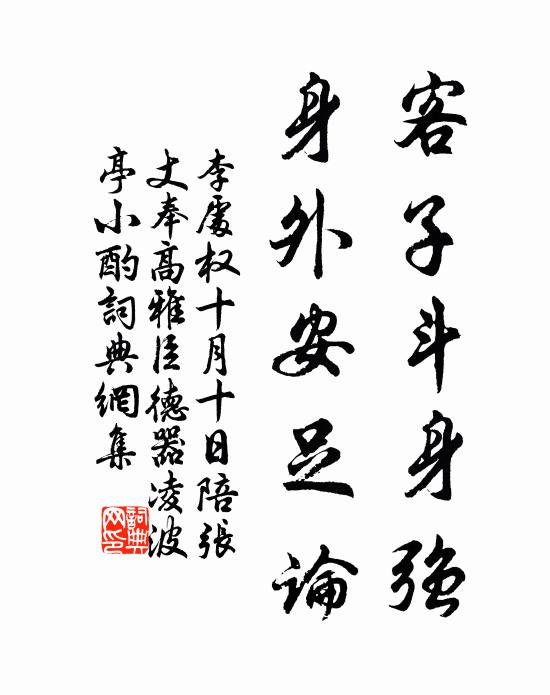 客子斗身強
身外安足論
李處权十月十日陪張
丈奉高雅臣德器凌波
亭小酌詞典網集
詞典
网印